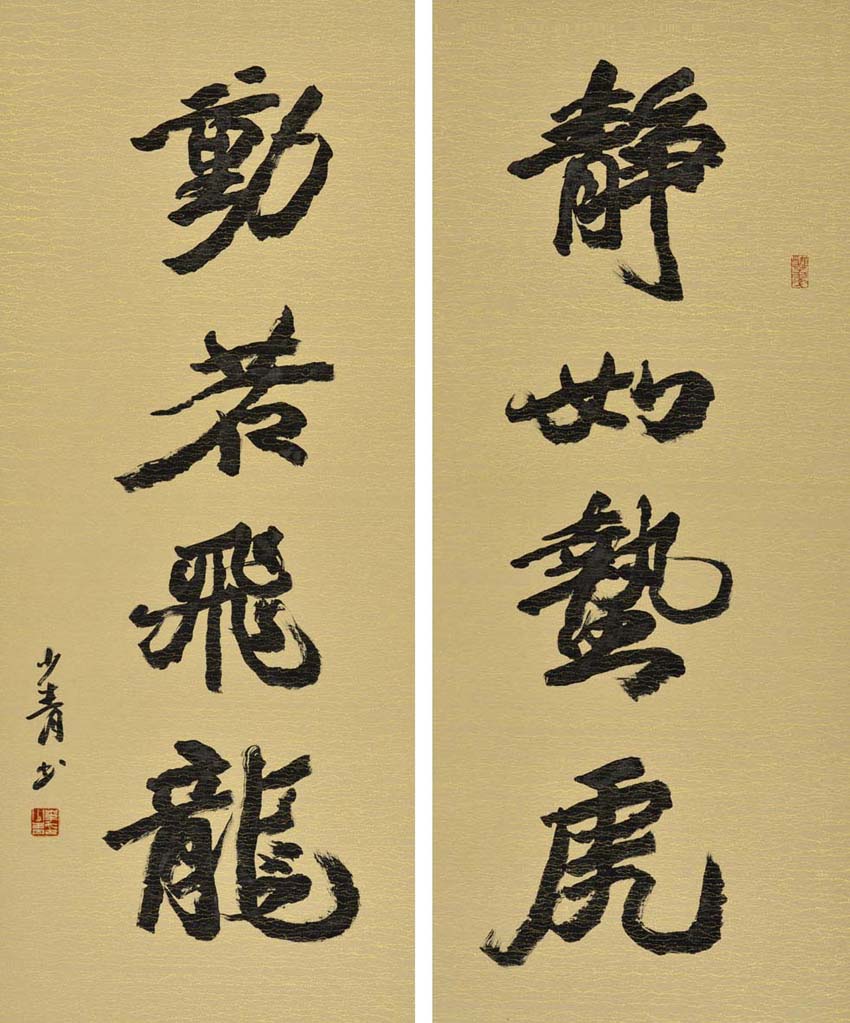 靜如蟄虎
動若飛龍
少青书